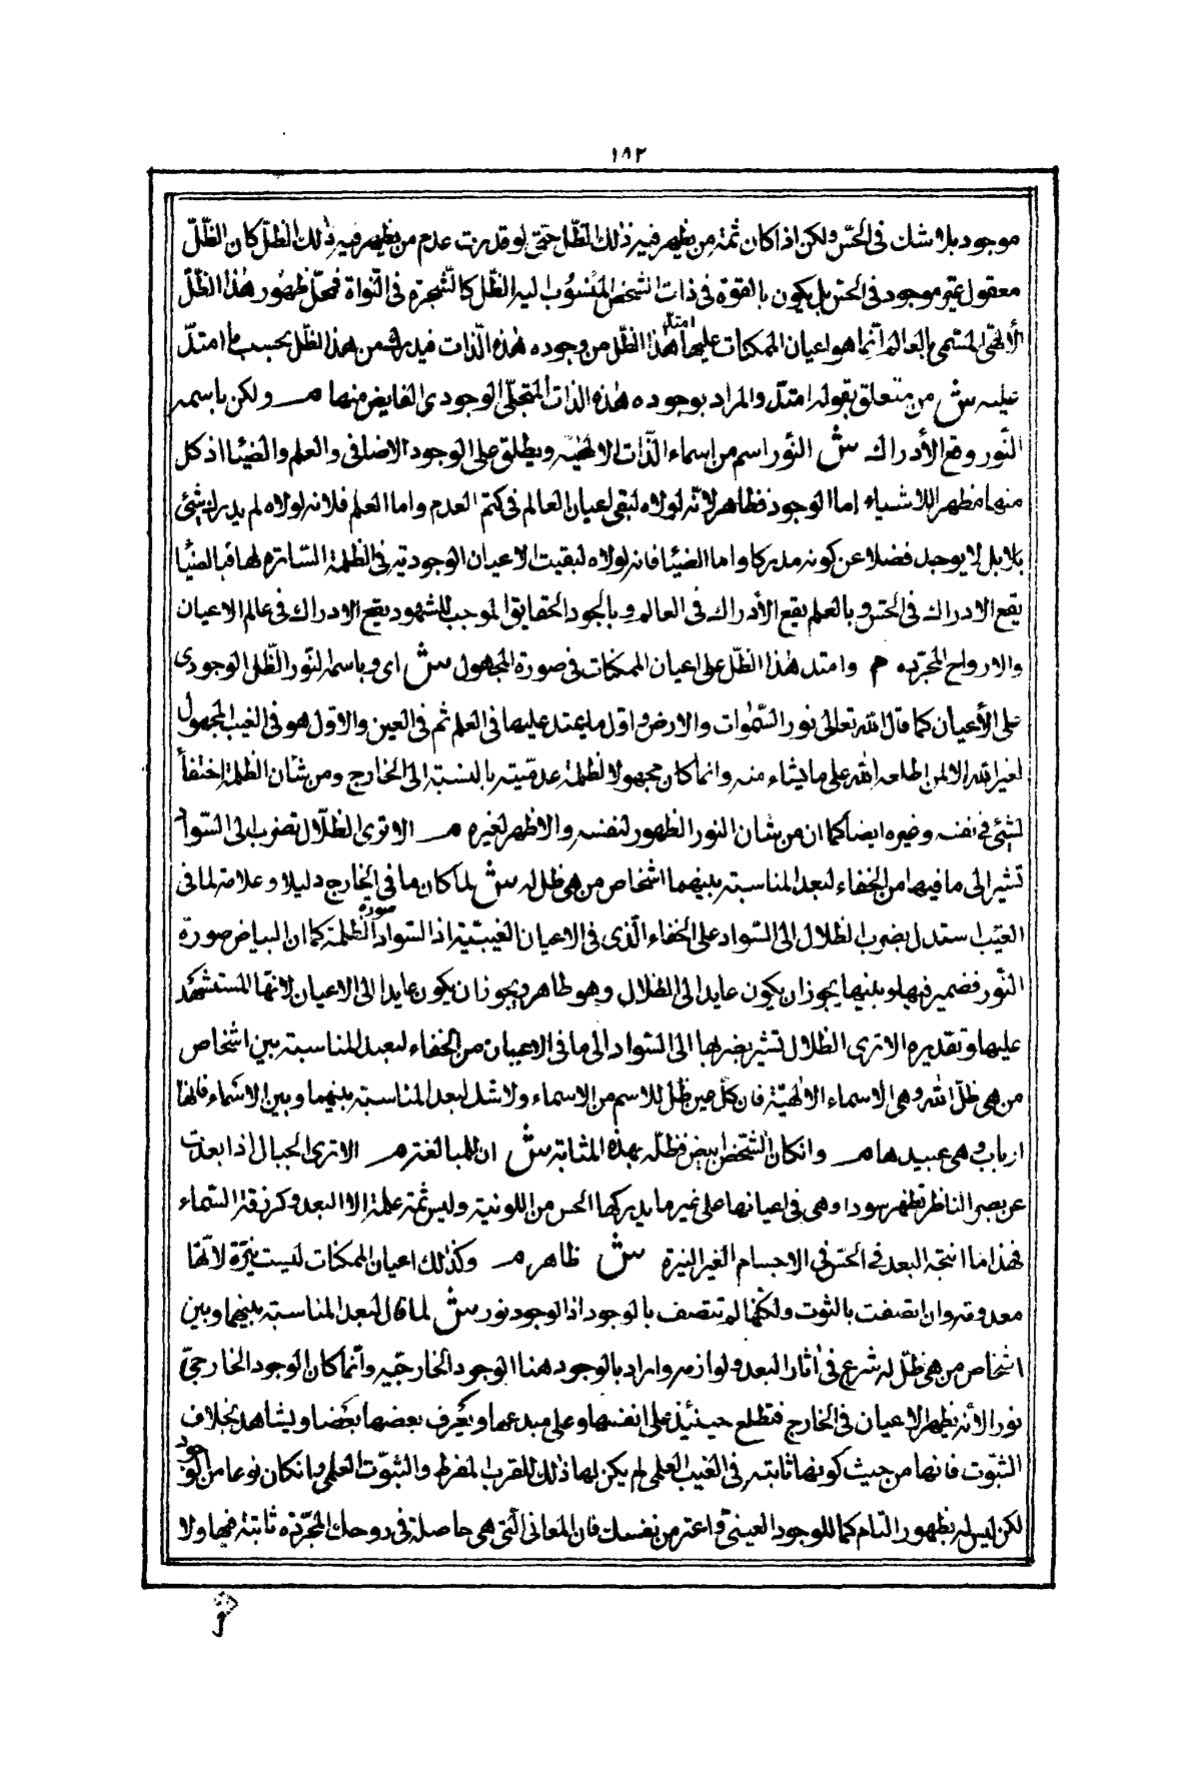 ١٨٢
موجود بلا شك فى الحسّ ولكن اذا كان ثمة من يظهر فيه ذلك الظلّ حتى لو قدرت عدم من يظهر فيه ذلك الظلّ كان الظّلّ
معقول غير موجود فى الحسّ بل يكون بالقوة فى ذات الشخص المنسوب اليه الظّل كالشّجرة فى النّواة فمحلّ ظهور هذا الظّلّ
الألهىّ المسمى بالعالم انّما هو اعيان الممكنات عليها امتدّ هذا الظّل من وجوده هذه الذّات فيدرك من هذا الظّل بحسب ما امتدّ
عليه ش من متعلق بقوله امتدّ والمراد بوجوده هذه الذات التجلّى الوجودى الفايض منها م ولكن باسمه
النّور وقع الأدراك ش النّور اسم من اسماء الذّات الالهيّة ويطلق على الوجود الاضافى والعلم والضيئا اذ كل
منها مظهر للاشياء اما الوجود فظاهر لانّه لولاه لبقى اعيان العالم فى كتم العدم واما العلم فلانه لولاه لم يدرك شئى
بلا بل لا يوجد فضلا عن كونه مدركا واما الضيئا فانه لولاه لبقيت الاعيان الوجودية فى الظلمة الساترة لها فبالضيئا
يقع الادراك فى الحسّ و بالعلم يقع الأدراك فى العالم و بالجود الحقايق الموجب للشهود يقع الادراك فى عالم الاعيان
والارواح المجرّده م وامتد هذا الظّل على اعيان الممكنات فى صورة المجهول ش اى وباسمه النّور الظّل الوجودى
على الأعيان كما قال الله تعالى نور السّموات والارض و اوّل ما يمتد عليها فى العلم ثم فى العين والاوّل هو فى الغيب المجهول
لغير الله الا لمن اطلعه الله على ما يشاء منه وانما كان مجهولا لظلمة عدميّته بالنسبة الى الخارج ومن شأن الظلمة اختفأ
لشيئى فى نفسه وغيره ايضا كما ان من شان النور الظهور لنفسه والاظهر لغيره م الا ترى الظّلال تضرب الى السّواد
تشير الى ما فيها من الخفاء لبعد المناسبة بينهما اشخاص من هى ظل له ش لما كان ما فى الخارج دليلا و علامة لما فى
الغيب استدل بضرب الظلال الى السواد على الخفاء الّذى فى الاعيان الغيبيّة اذ السّواد صورة الظلمة كما ان البياض صورة
النّور فضمير فيها و بينها يجوز ان يكون عايد الى الظلال وهو ظاهر ويجوز ان يكون عايدا الى الاعيان لانّها المستشهد
عليها و تقديره الا ترى الظلال تشير بضربها الى السّواد الى ما فى الاعيان من الخفاء لبعد المناسبة بين اشخاص
من هى ظلّ الله و هى الاسماء الالهيّة فان كلّ عين ظلّ للاسم من الاسماء ولا شك لبعد المناسبة بينهما و بين الاسماء فانها
ارباب و هى عبيدها م وان كان الشّخص ابيض فظلّه بهذه المثابة ش ان للمبالغة م الا ترى الجبال اذا بعدت
عن بصر الناظر تظهر سودا وهى فى اعيانها على غير ما يدركها الحس من اللونية وليس ثمة علة الا البعد و كزرقة السّماء
فهذا ما انتجة البعد فى الحسّ فى الاجسام الغير النيرة ش ظاهر م وكذلك اعيان الممكنات ليست نيرّة لانّها
معدومة وان اتصفت بالثبوت ولكنّها لم تتصف بالوجود اذ الوجود نور ش لما قال لبعد المناسبة بينهما و بين
اشخاص من هى ظلّ له شرع فى اثار البعد ولوازمه واراد بالوجود هنا الوجود الخارجىّ وانّما كان الوجود الخارجىّ
نورا لأنه يظهر الاعيان فى الخارج فتطلع حينئذ على انفسها وعلى مبدعها و يعرف بعضها بعضا ويشاهد بخلاف
الثبوت فانها من حيث كونها ثابتة فى الغيب العلمى لم يكن لها ذلك للقرب المفرط والثبوّت العلمى وان كان نوعا من الوجود
لكن ليس له بظهور التام كما للوجود العينى واعتبر من نفسك فان المعانى الّتى هى حاصلة فى روحك المجرّدة ثابتة فيها ولا